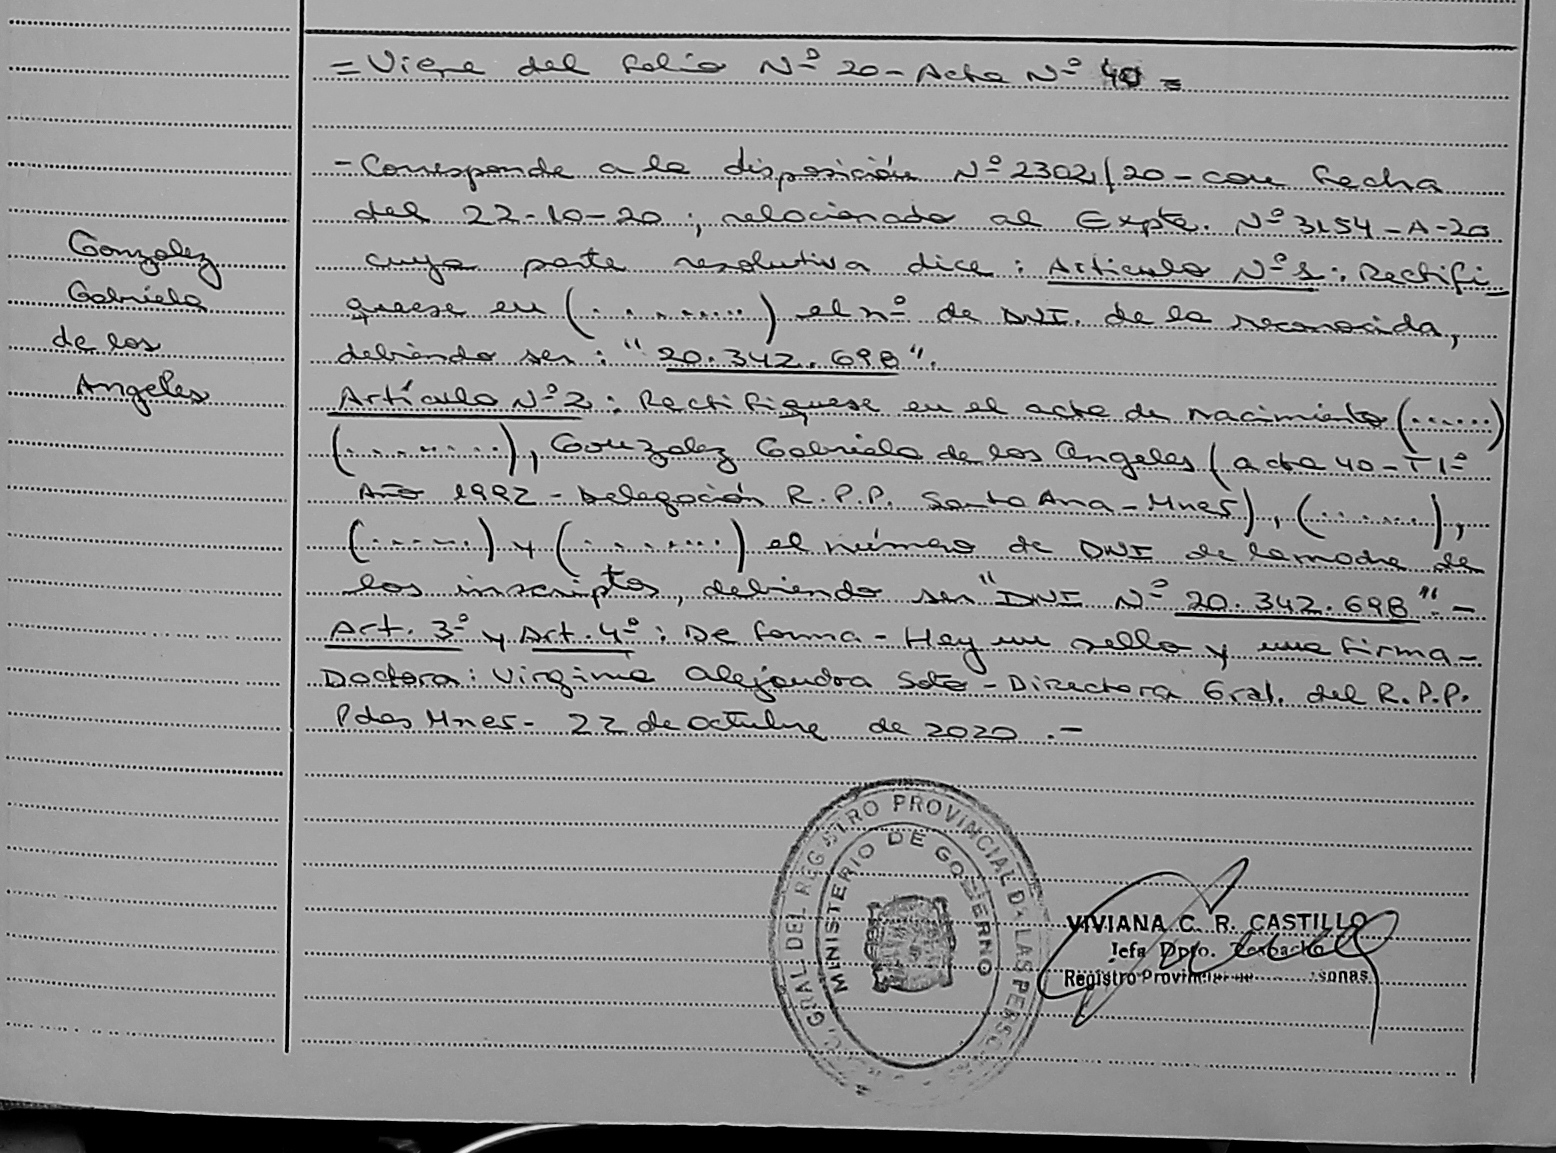 = Viene del folio Nº 20 - Acta Nº 40 =
- Corresponde a la disposición Nº 2302/20 - con fecha
del 22-10-20; relacionado al Expte. Nº 3154-A-20
cuya parte resolutiva dice: Artículo Nº 1: Rectifi-
quese en (..........) el nº de DNI. de la reconocida,
debiendo ser: "20.342.698".
Artículo Nº 2: Rectifiquese en el acta de nacimiento (......)
(..........), Gonzalez Gabriela de los Angeles (acta 40-T1º
Año 1992 - Delegación R.P.P. Santa Ana - Mnes), (........),
(......) y (.........) el número de DNI de la madre de
los inscriptos, debiendo ser "DNI Nº 20.342.698". -
Art. 3º y Art. 4º: De forma - Hay un sello y una firma -
Doctora: Virginia Alejandra Soto - Directora Gral. del R.P.P.
Pdas Mnes - 22 de octubre de 2020 . -
Gonzalez
Gabriela
de los
Angeles
GRAL DEL REGISTRO PROVINCIAL DE LAS PERSONAS
MINISTERIO DE GOBIERNO
VIVIANA C. R. CASTILLO
Jefa Dpto.
Registro Provincial